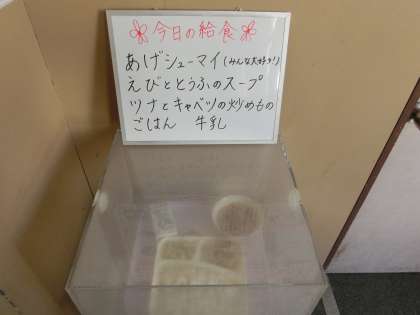 今日の給食
あげシューマイ(みんな大好き!)
えびととうふのスープ
ツナとキャベツの炒めもの
ごはん 牛乳